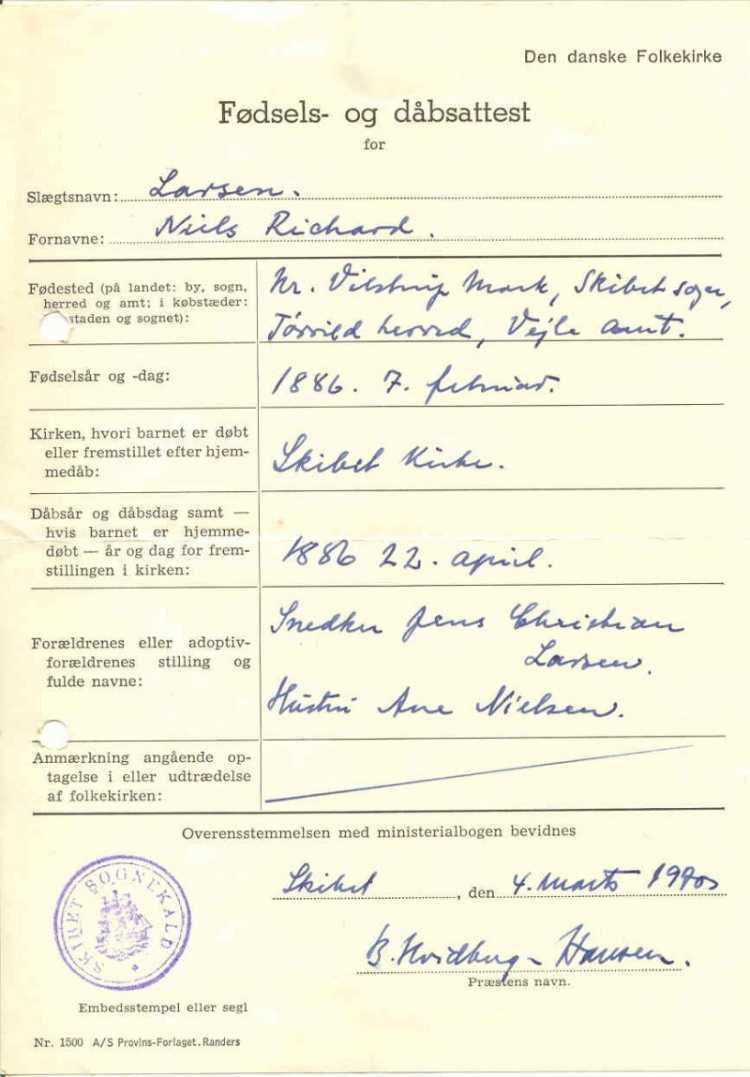 Den danske Folkekirke
Fødsels- og dåbsattest
for
Slægtsnavn: Larsen.
Fornavne: Niels Richard.
Fødested (på landet: by, sogn,
herred og amt; i købstæder:
staden og sognet):
Nr. Vilstrup Mark, Skibet sogn,
Tørrild herred, Vejle amt.
Fødselsår og -dag:
1886. 7. februar.
Kirken, hvori barnet er døbt
eller fremstillet efter hjem-
medåb:
Skibet Kirke.
Dåbsår og dåbsdag samt —
hvis barnet er hjemme-
døbt — år og dag for frem-
stillingen i kirken:
1886 22. april.
Forældrenes eller adoptiv-
forældrenes stilling og
fulde navne:
Snedker Jens Christian
Larsen.
Hustru Ane Nielsen.
Anmærkning angående op-
tagelse i eller udtrædelse
af folkekirken:
Overensstemmelsen med ministerialbogen bevidnes
Skibet, den 4. marts
B. Hvidberg-Hansen.
Præstens navn.
SKIBET SOGNEKALD
Embedsstempel eller segl
Nr. 1500 A/S Provins-Forlaget. Randers